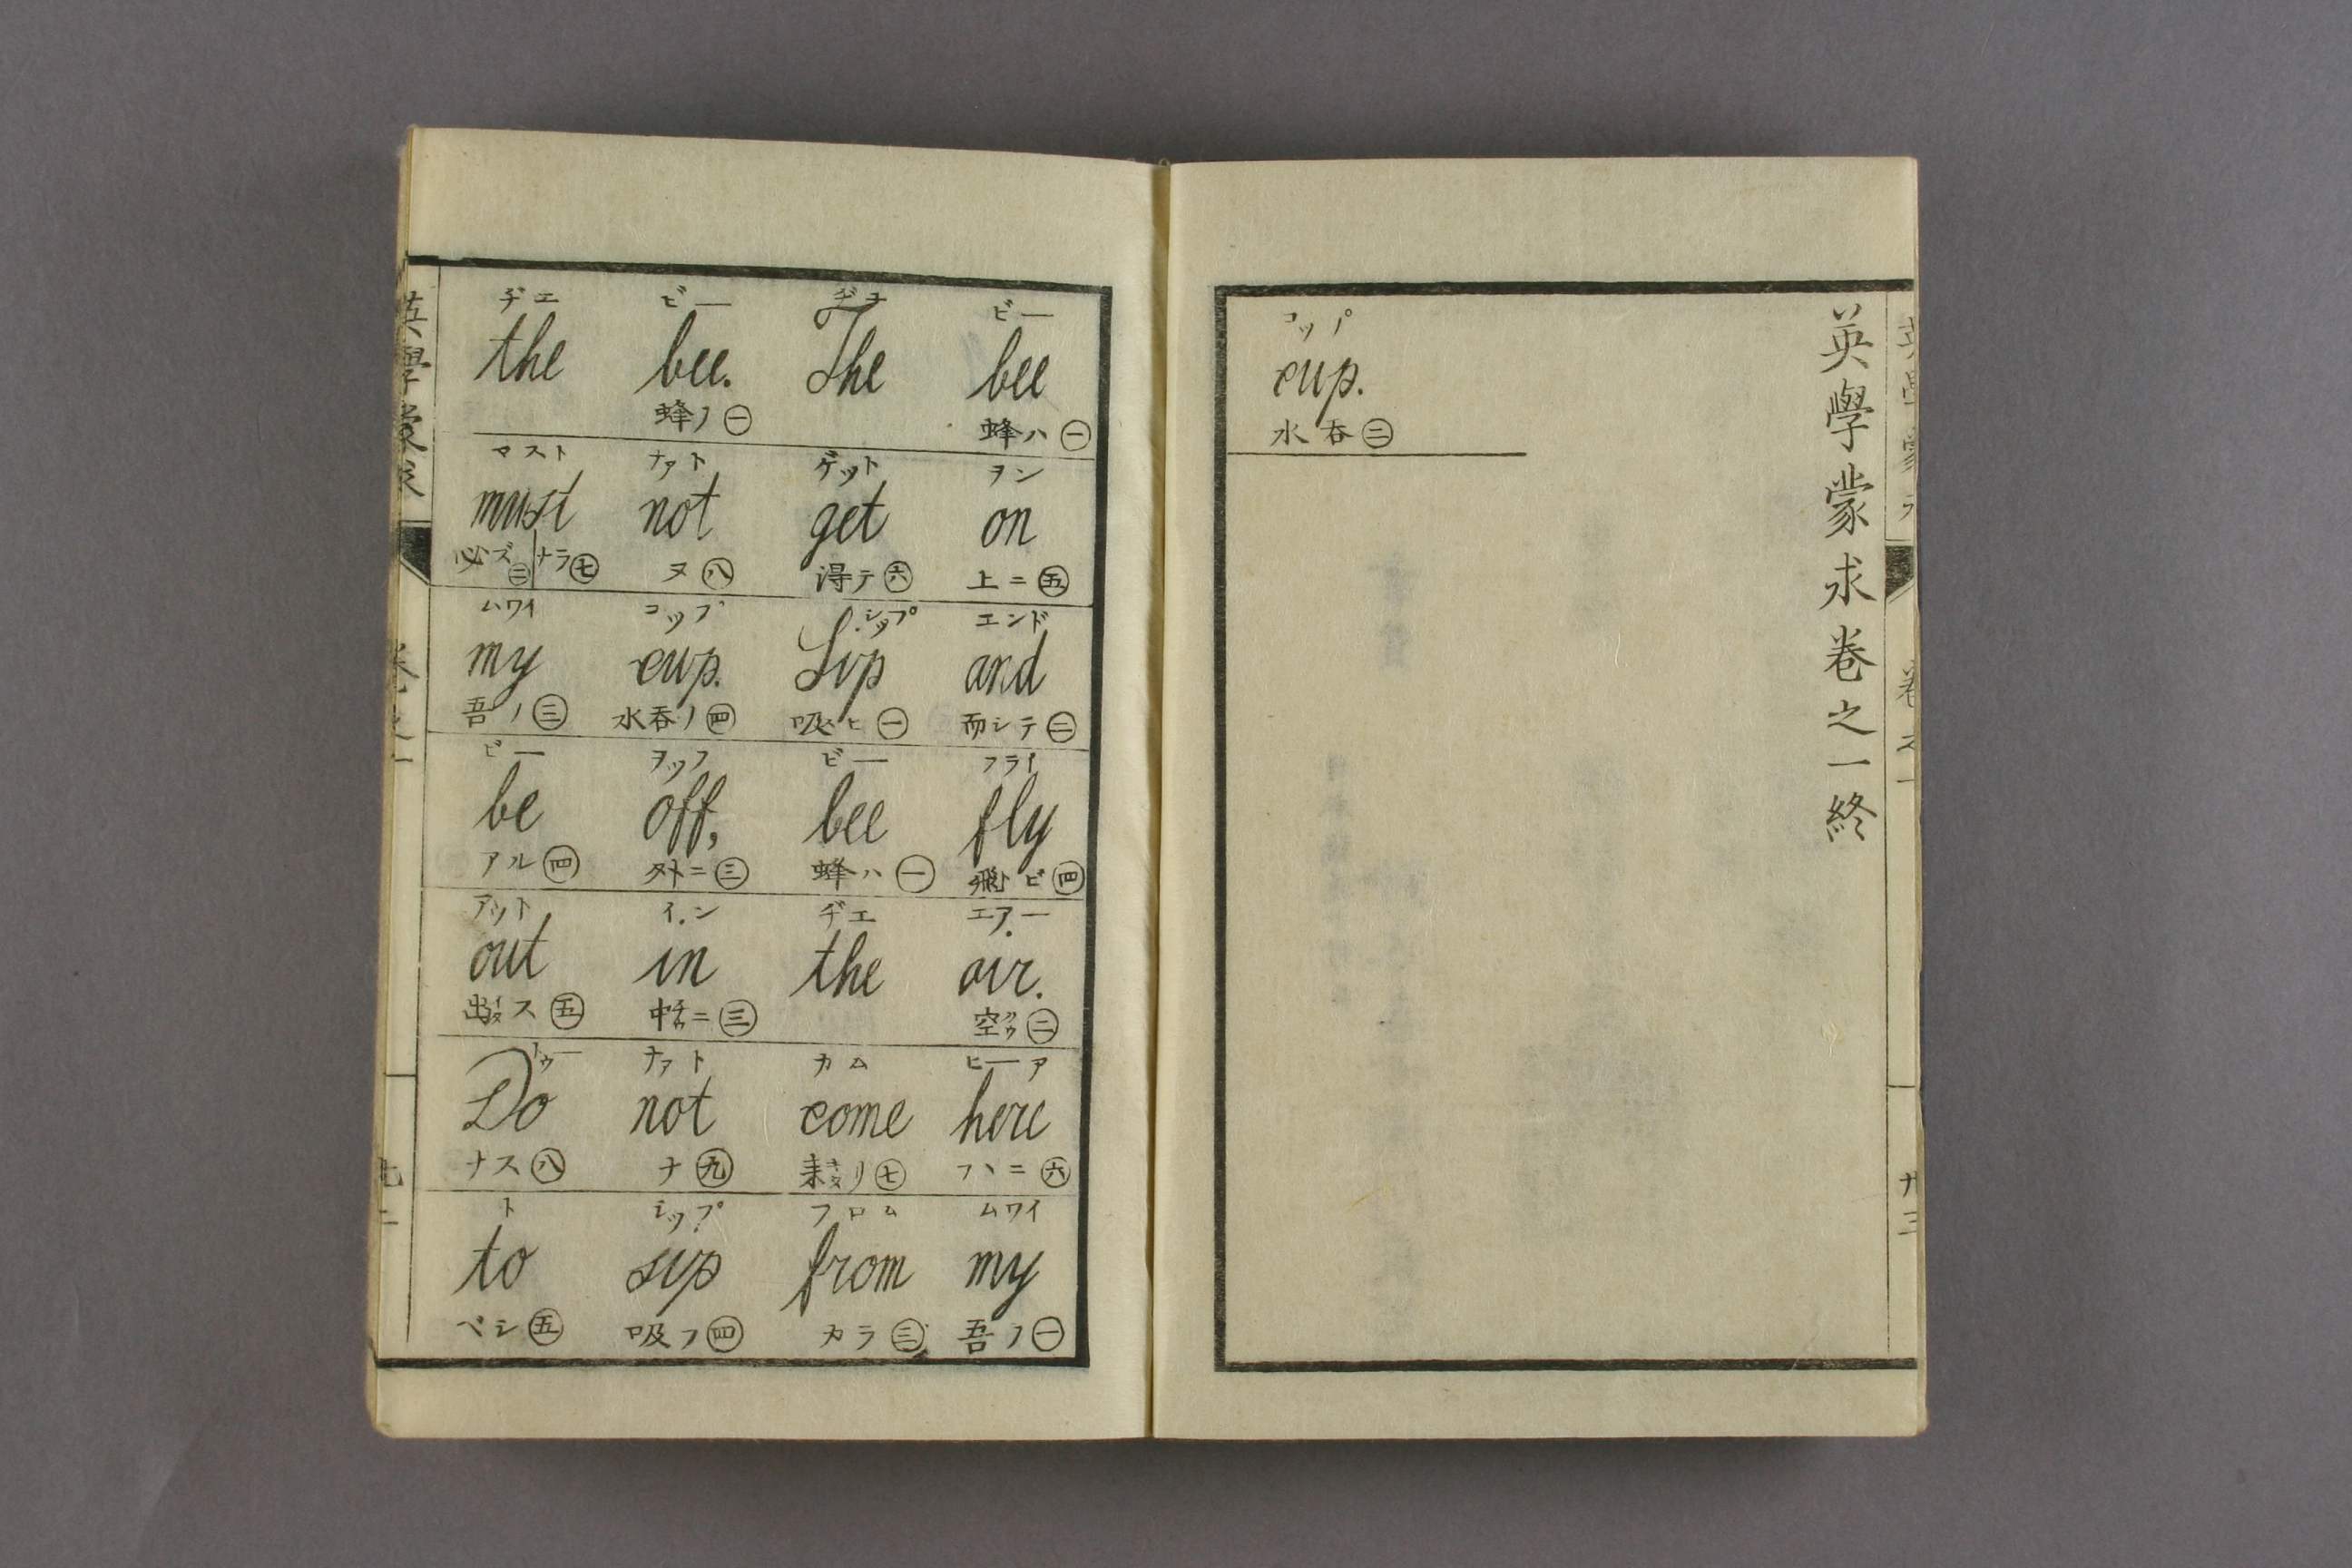 ヂエ ビー ヂヱ ビー
the bee. The bee
蜂ノ㊀ 蜂ハ㊀
マスト ナアト ゲット ヲン
must not get on
必ズ㊁ ナラ㊆ ヌ㊇ 得テ㊅ 上ニ㊄
ムワイ コップ シップ エンド
my cup. Sip and
吾ノ㊂ 水呑ノ㊃ 吸ヒ㊀ 而シテ㊁
ビー ヲッフ ビー フライ
be off, bee fly
アル㊃ 外ニ㊂ 蜂ハ㊀ 飛ビ㊃
アウト イン ヂエ エアー
out in the air.
出ス㊄ 中ニ㊂ 空クウ㊁
トゥー ナアト カム ヒーア
Do not come here
ナス㊇ ナ㊈ 来リ㊆ ニ㊅
ト シップ フロム ムワイ
to sip from my
ベシ㊄ 吸フ㊃ カラ㊂ 吾ノ㊀
コップ
cup.
水呑㊁
英學蒙求卷之一終
英學蒙求
卷之一
廿三